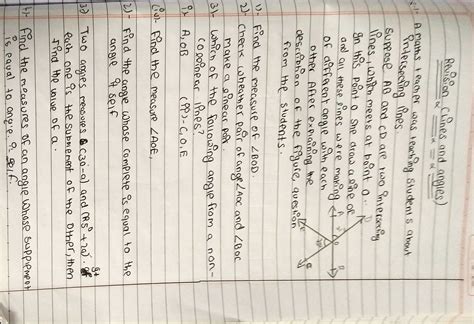 Revision (Lines and angles)
Q.1. A maths teacher was teaching students about
intersecting lines.
Suppose AB and CD are two intersecting
lines, which meets at point O.
the point O. She draw a
and all these lines were making
of different angle with each
other After explaining the
description of the figure, question
from the students.
1) Find the measure of ∠BOD.
2) Check whether pair of angle ∠AOC and ∠BOC
make a linear pair.
3) Which of the following angle from a non-
coplanar lines?
(i) A,O,B (ii) C,O,E
(iv) Find the measure ∠AOE.
2) Find the angle whose complete is equal to the
angle it self
3) Two angles measures (30-a) and (125+2a). If
each one is the supplement of the other, then
find the value of a.
4) Find the measures of an angle whose supplement
is equal to angle it self.